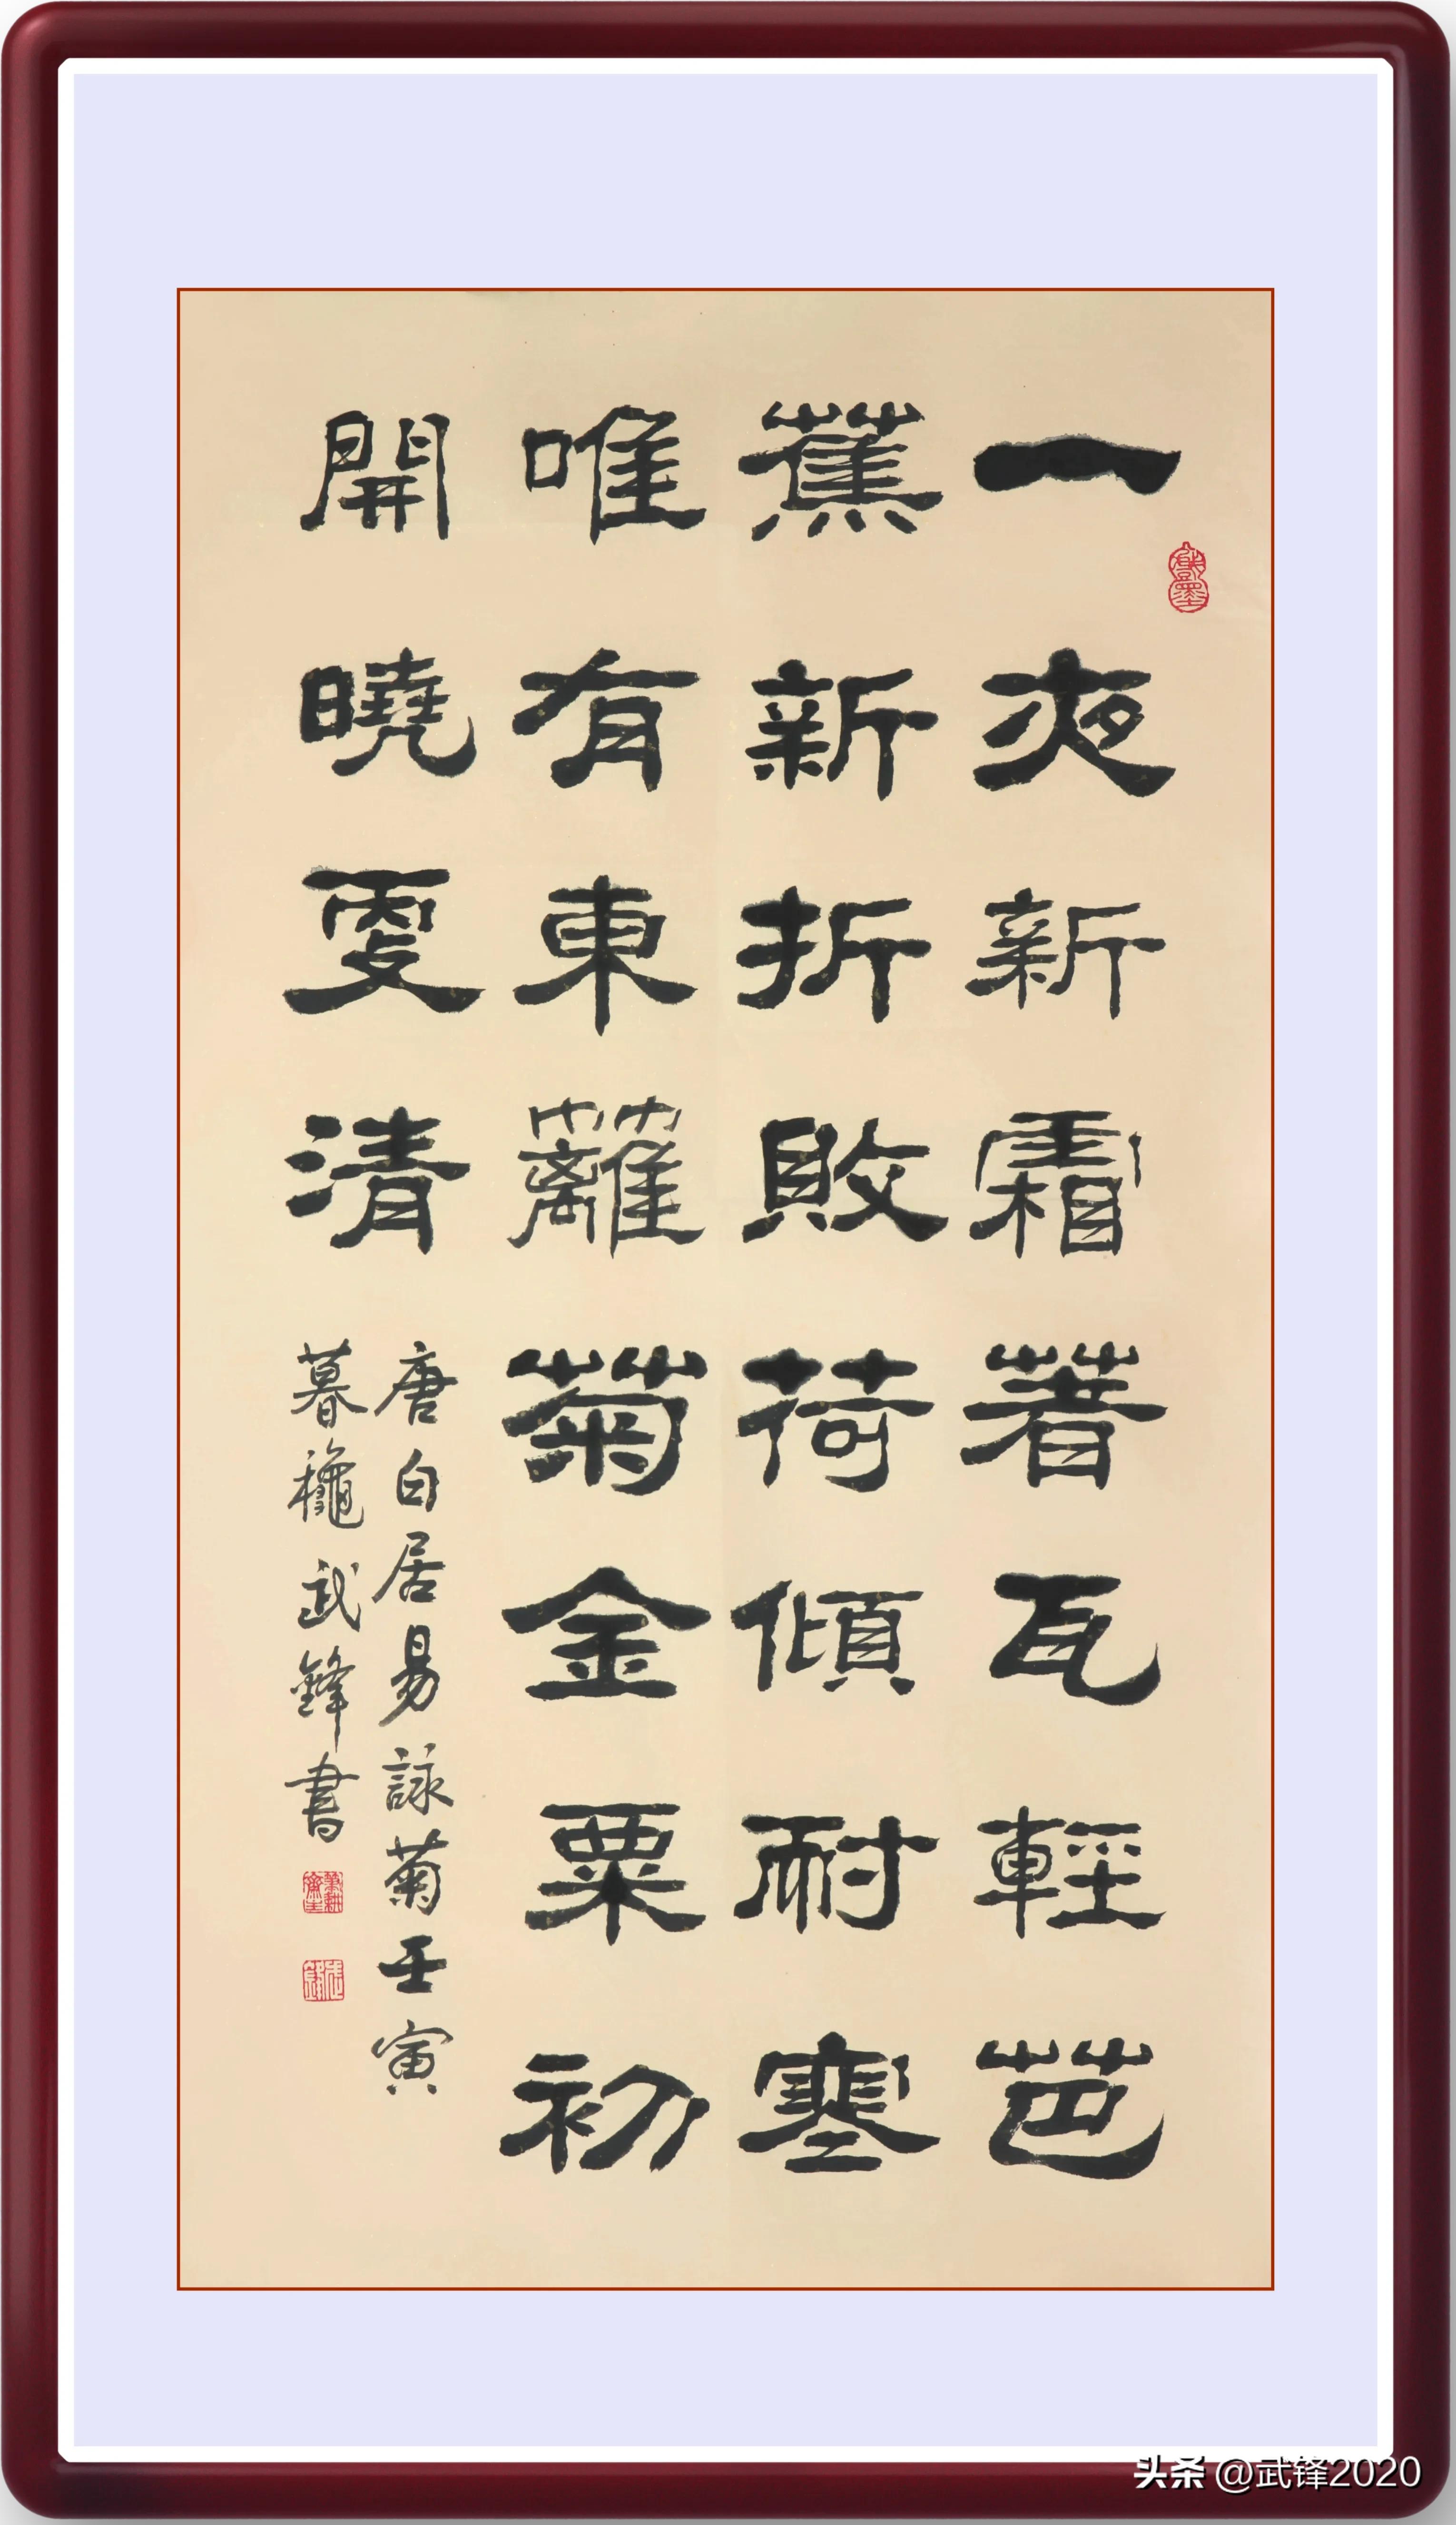 一夜新霜著瓦輕芭
蕉新折敗荷傾耐寒
唯有東籬菊金粟初
開曉更清
唐白居易詠菊壬寅
暮龝武鋒書
头条 @武锋2020